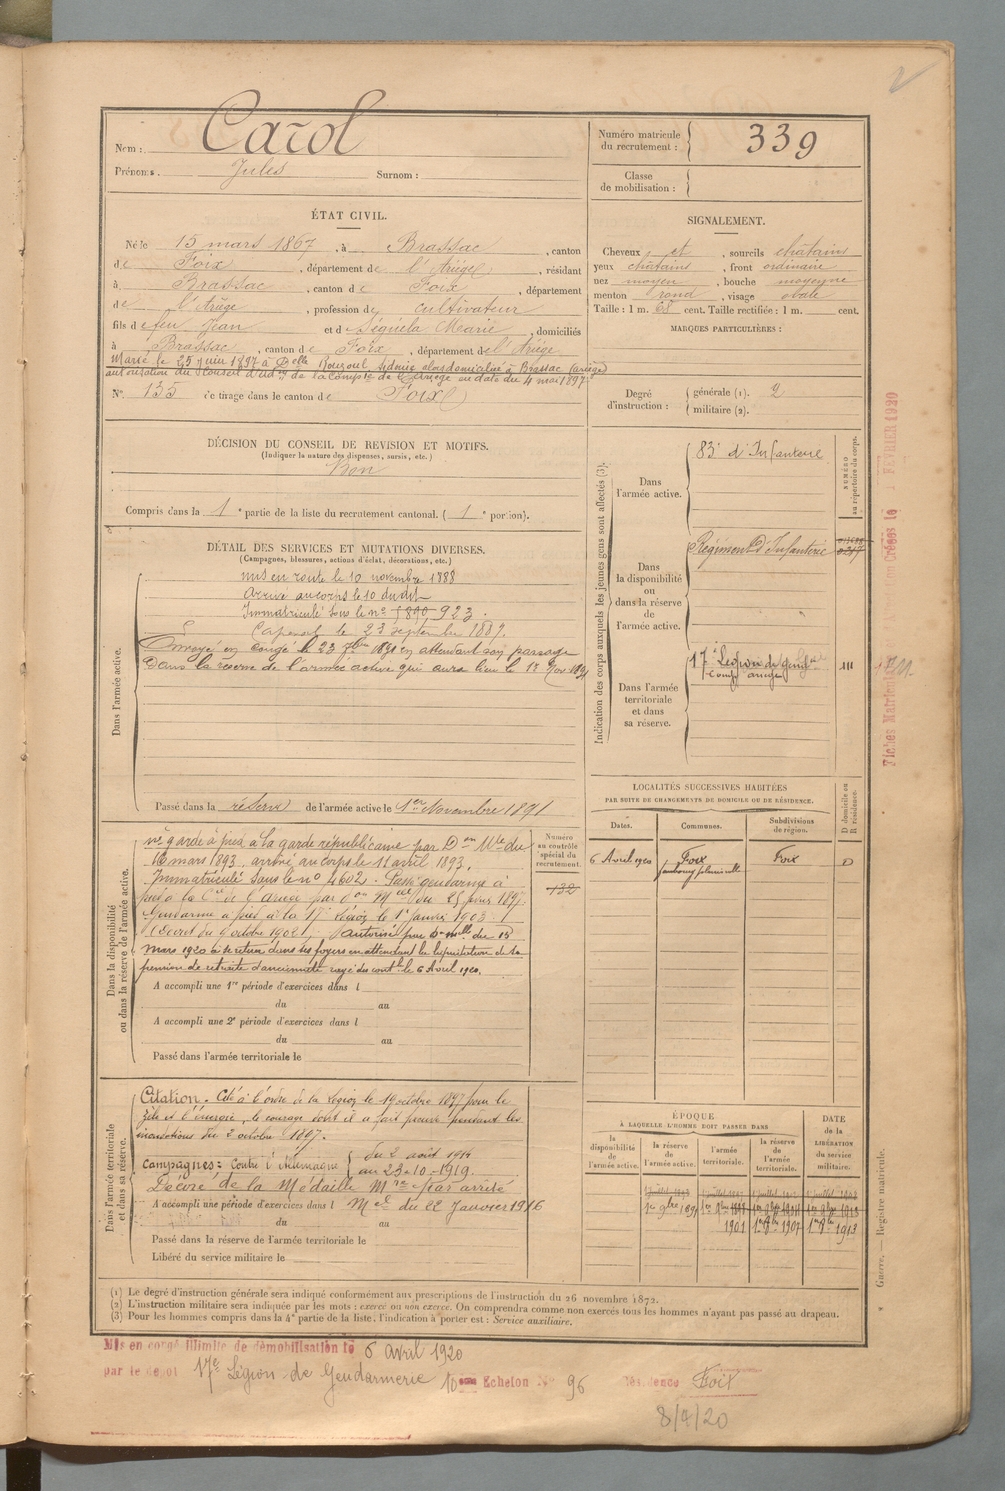 Nom : Carol
Prénoms. Jules Surnom :
Numéro matricule du recrutement : 339
Classe de mobilisation :
ÉTAT CIVIL.
Né le 15 mars 1867, à Brassac, canton
de Foix, département de l'Ariège, résidant
à Brassac, canton de Foix, département
de l'Ariège, profession de cultivateur
fils de feu Jean et de Séguela Marie, domiciliés
à Brassac, canton de Foix, département de l'Ariège
Marié le 25 juin 1897 à Delle Rouzoul, Sidonie alors domiciliée à Brassac (ariège)
autorisation du Conseil d'adon de la Compie de l'Ariège en date du 4 mai 1897
No. 135 de tirage dans le canton de Foix
SIGNALEMENT.
Cheveux et, sourcils châtains
yeux châtains, front ordinaire
nez moyen, bouche moyenne
menton rond, visage ovale
Taille : 1 m. 68 cent. Taille rectifiée : 1 m. cent.
MARQUES PARTICULIÈRES :
Degré d'instruction : générale (1). 2
militaire (2).
DÉCISION DU CONSEIL DE REVISION ET MOTIFS.
(Indiquer la nature des dispenses, sursis, etc.)
Bon
Compris dans la 1e partie de la liste du recrutement cantonal. (1e portion).
DÉTAIL DES SERVICES ET MUTATIONS DIVERSES.
(Campagnes, blessures, actions d'éclat, décorations, etc.)
Dans l'armée active.
mis en route le 10 novembre 1888
Arrivé au corps le 10 du dit
Immatriculé sous le no 5890 923.
Caporal le 23 septembre 1889.
Envoyé en congé le 23 7bre 1891 en attendant son passage
dans la réserve de l'armée active qui aura lieu le 1er Nov 1891
Passé dans la réserve de l'armée active le 1er Novembre 1891
Indication des corps auxquels les jeunes gens sont affectés (3).
NUMÉRO au répertoire du corps.
Dans l'armée active.
83e d'Infanterie
Dans la disponibilité ou dans la réserve de l'armée active.
Régiment d'Infanterie
Dans l'armée territoriale et dans sa réserve.
17e Légion de gendie
Compie ariège
111
LOCALITÉS SUCCESSIVES HABITÉES
PAR SUITE DE CHANGEMENTS DE DOMICILE OU DE RÉSIDENCE.
Dates. Communes. Subdivisions de région. D domicile ou R résidence.
6 Avril 1920 Foix Foix D
Dans la disponibilité ou dans la réserve de l'armée active.
Numéro au contrôle spécial du recrutement.
132
né garde à pied à la garde républicaine par Don Mlle du
16 mars 1893, arrivé au corps le 11 avril 1893.
Immatriculé sous le no 4602. Passé gendarme à
pied à la Cie de l'Ariège par don Mlle du 25
Gendarme à pied à la 17e Légion le 1er janvier 1903
(Décret du 9 octobre 1902) autorisé par Don mlle du 15
Mars 1920 à se retirer dans ses foyers en attendant la liquidation de sa
pension de retraite d'ancienneté rayé des contles le 6 Avril 1920.
A accompli une 1re période d'exercices dans l
du au
A accompli une 2e période d'exercices dans l
du au
Passé dans l'armée territoriale le
Dans l'armée territoriale et dans sa réserve.
Citation. Cité à l'ordre de la Légion le 19 octobre 1897 pour le
zèle et l'énergie, le courage dont il a fait preuve pendant les
inondations du 2 octobre 1897.
Campagnes : Contre l'Allemagne du 2 août 1914
au 23-10-1919.
Décoré de la Médaille Mre par arrêté
A accompli une période d'exercices dans l Mel du 22 Janvier 1916
du au
Passé dans la réserve de l'armée territoriale le
Libéré du service militaire le
ÉPOQUE
À LAQUELLE L'HOMME DOIT PASSER DANS
la disponibilité de l'armée active.
la réserve de l'armée active.
l'armée territoriale.
la réserve de l'armée territoriale.
DATE de la LIBÉRATION du service militaire.
1er 9bre 1891
1901 1er 9bre 1907 1er 9bre 1913
(1) Le degré d'instruction générale sera indiqué conformément aux prescriptions de l'instruction du 26 novembre 1872.
(2) L'instruction militaire sera indiquée par les mots : exercé ou non exercé. On comprendra comme non exercés tous les hommes n'ayant pas passé au drapeau.
(3) Pour les hommes compris dans la 4e partie de la liste, l'indication à porter est : Service auxiliaire.
Guerre. — Registre matricule.
Mis en congé illimité de démobilisation le 6 avril 1920
par le dépôt 17e Légion de Gendarmerie 10ème Echelon No 96 Résidence Foix
8/4/20